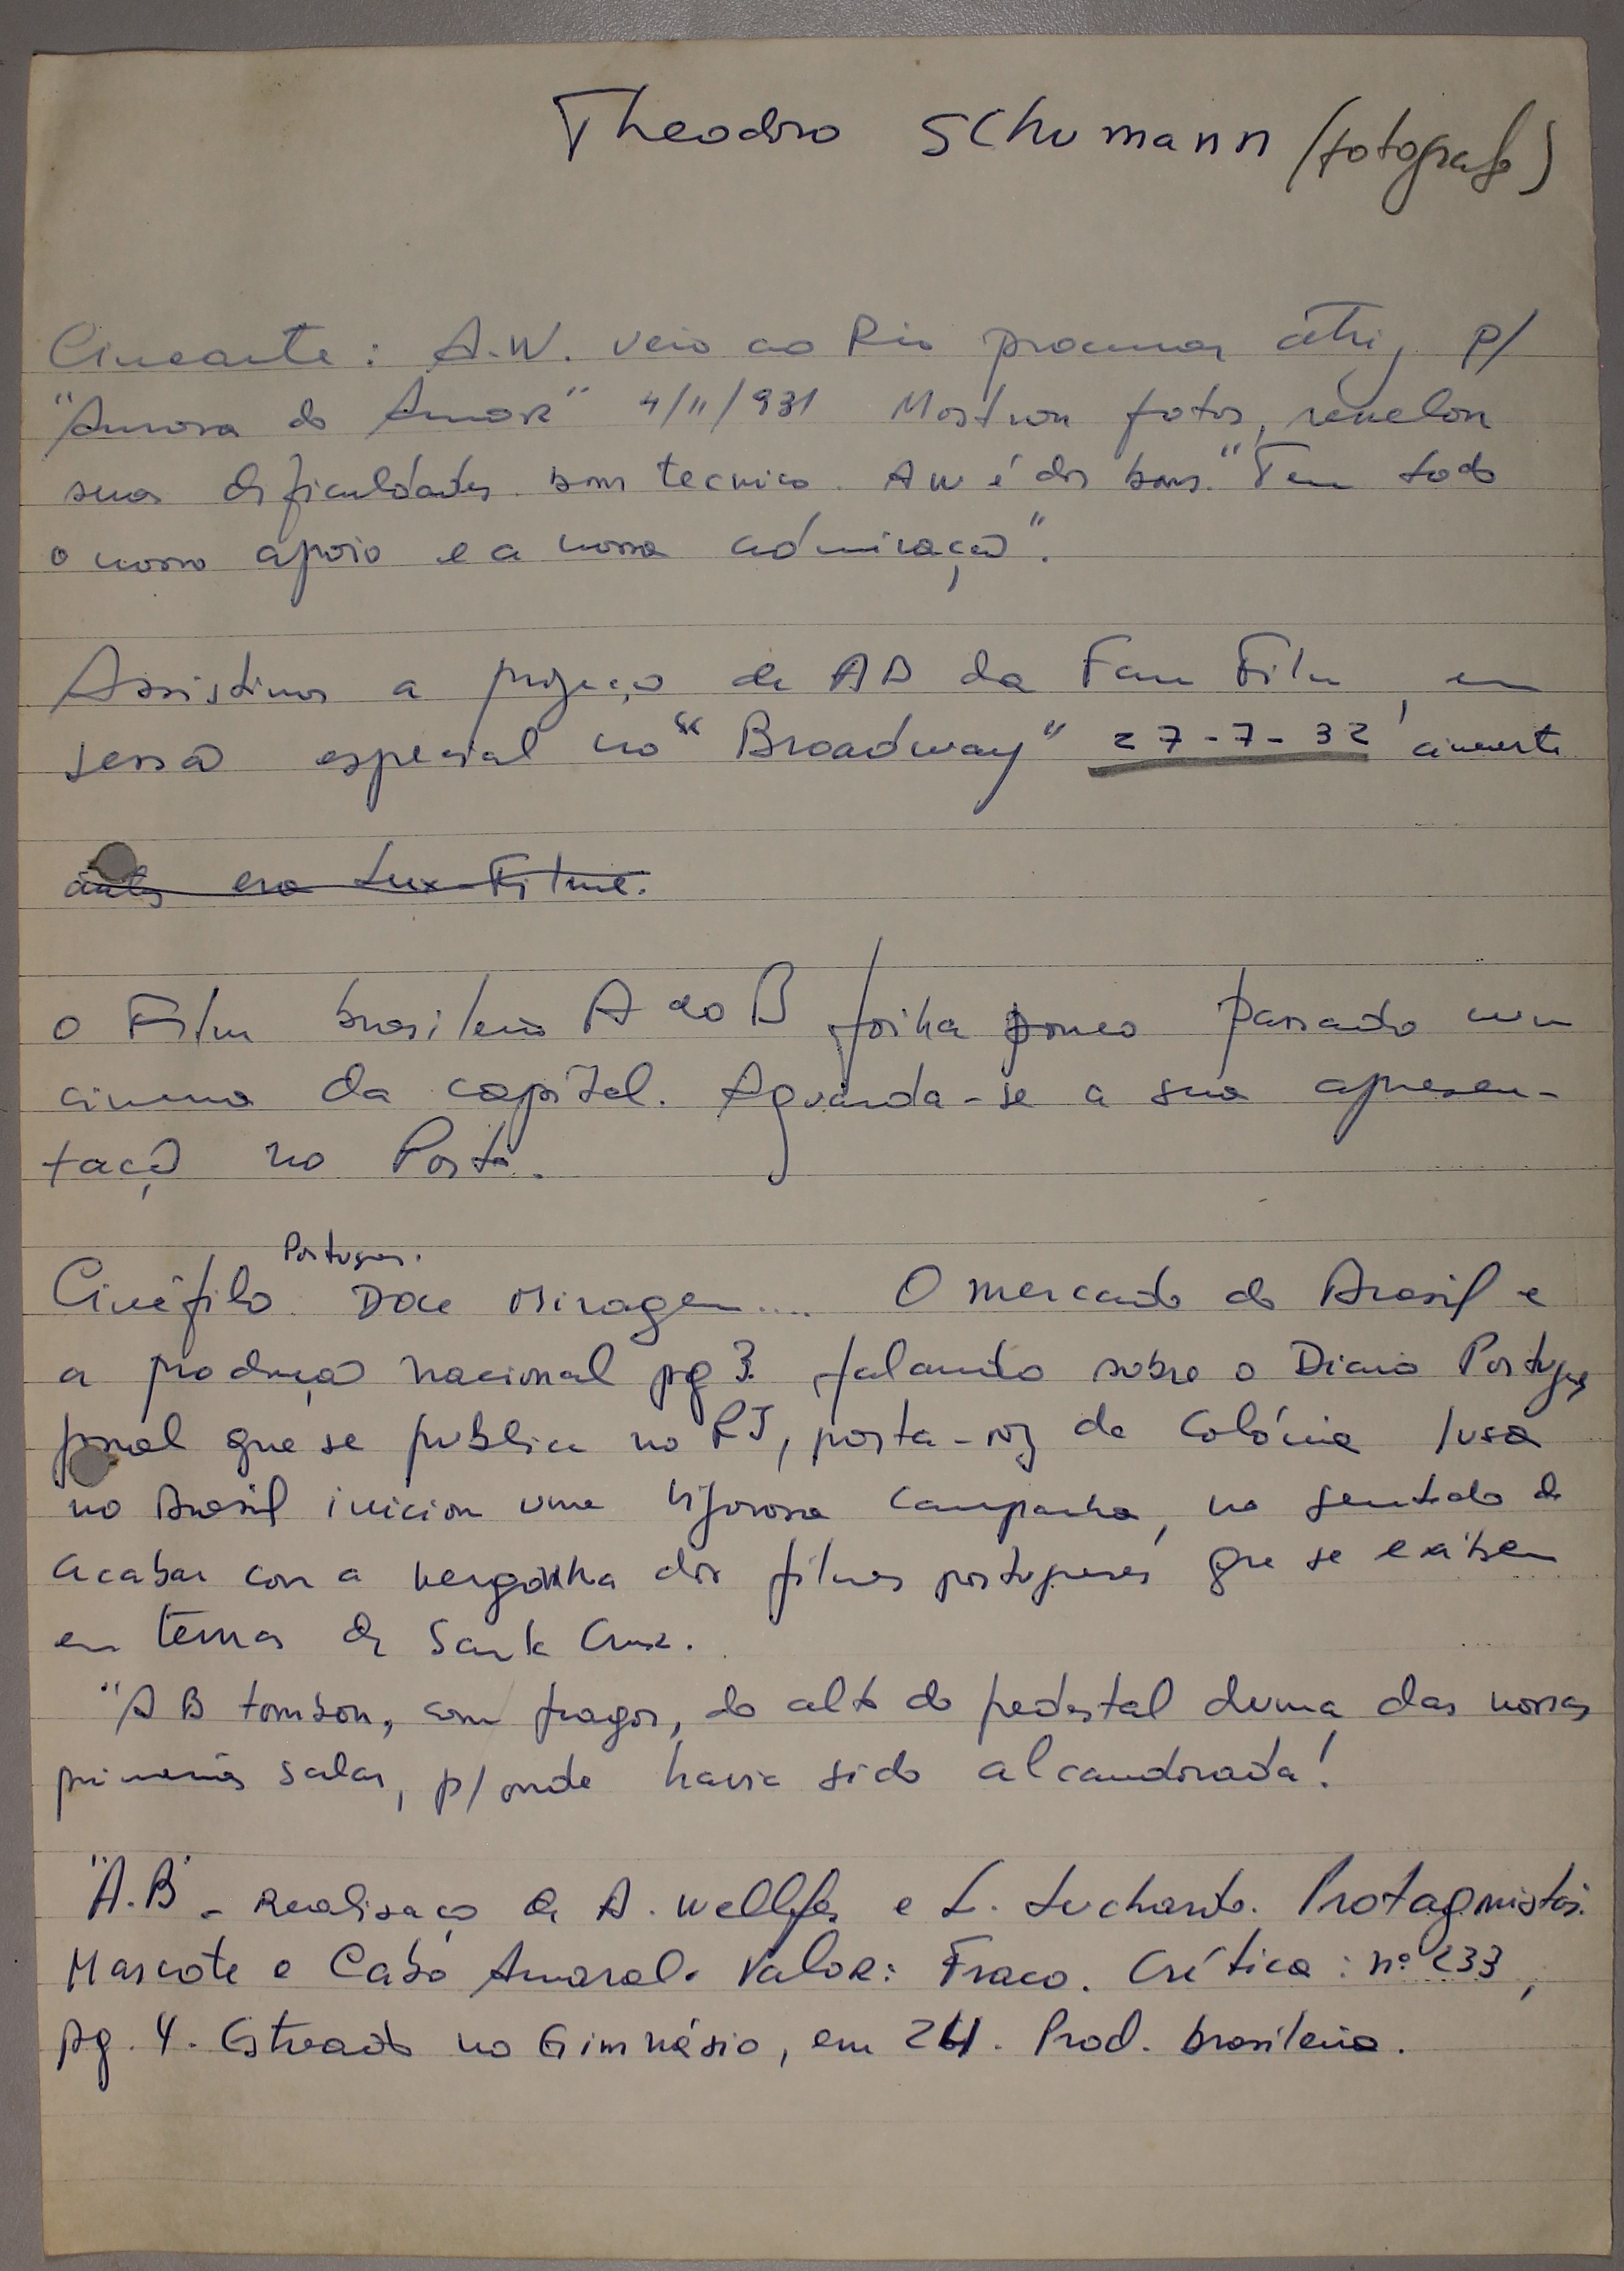 Theodoro Schumann (fotografo)
Cinearte: A.W. veio ao Rio procurar atriz p/
"Aurora do Amor" 4/11/931 Mostrou fotos, revelou
suas dificuldades. bom tecnico. AW é dos bons. "Tem todo
o nosso apoio e a nossa admiração".
Assistimos a projeção de AD da Fam Film, em
sessão especial no "Broadway" 27-7-32 cinearte
antes era Lux-Filme.
O Film brasileiro A do B foi ha pouco passado num
cinema da capital. Aguarda-se a sua apresen-
tação no Porto.
Portugues.
Cinéfilo. Doce Miragem.... O mercado do Brasil e
a produção nacional pg 3. falando sobre o Diario Portugues
jornal que se publica no RJ, porta-voz da Colónia lusa
no Brasil iniciou uma vigorosa campanha, no sentido de
acabar com a vergonha dos filmes portugueses que se exibem
em terras de Santa Cruz.
"AB tombou, com fragor, do alto do pedestal duma das nossas
primeiras salas, p/ onde havia sido alcandorada!
"A.B" - Realisação de A. e L. Luchardo. Protagonistas.
Mascote e Cabo Amaral. Valor: Fraco. Crítica: nº 233,
pg. 4. Estreado no Gimnásio, em 24. Prod. brasileira.